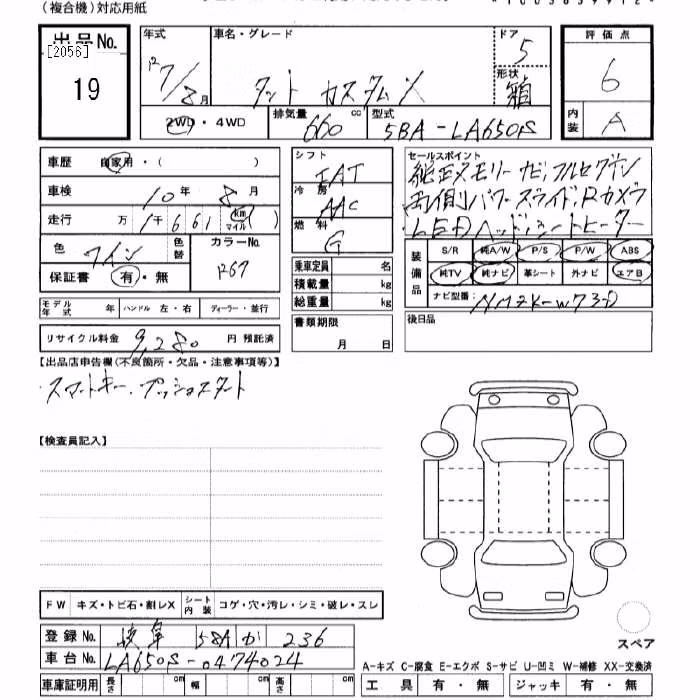 (複合機)対応用紙
出品No.
[2056]
19
年式
R7/8月
車名・グレード
タント カスタムX
ドア
5
形状
箱
評価点
6
内装
A
2WD・4WD
排気量
660 cc
型式
5BA-LA650S
車歴 自家用・( )
車検 10年 8月
走行 万 1千661 km マイル
色 ワイン
色替
カラーNo.
R67
保証書 有・無
シフト
IAT
冷房
AAC
燃料
G
乗車定員 名
積載量 kg
総重量 kg
書類期限
月 日
セールスポイント
純正メモリーナビ,フルセグTV
両側パワースライド,Rカメラ
LEDヘッド,シートヒーター
装備品
S/R 純A/W P/S P/W ABS
純TV 純ナビ 革シート 外ナビ エアB
ナビ型番: NMZK-W73D
後日品
モデル年式 年 ハンドル 左・右 ディーラー・並行
リサイクル料金 9,280 円 預託済
【出品店申告欄(不良箇所・欠品・注意事項等)】
・スマートキー.プッシュスタート
【検査員記入】
FW キズ・トビ石・割レX シート内装 コゲ・穴・汚レ・シミ・破レ・スレ
登録No. 岐阜 58A か 236
車台No. LA650S-0474024
車庫証明用 長さ cm 幅 cm 高さ cm
スペア
A-キズ C-腐食 E-エクボ S-サビ U-凹ミ W-補修 XX-交換済
工具 有・無 ジャッキ 有・無